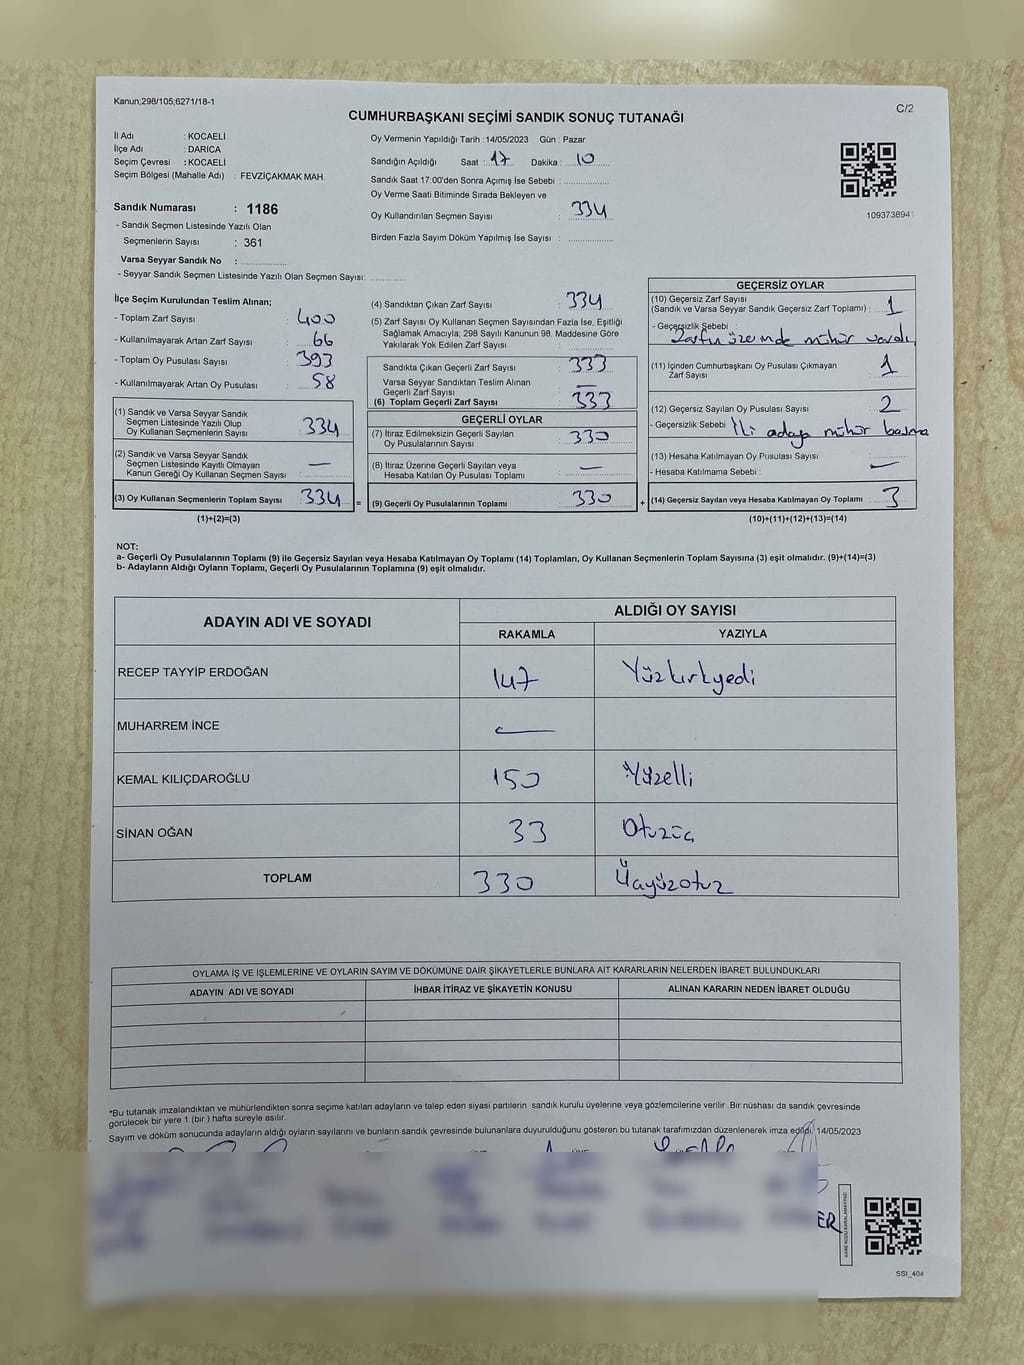 Kanun;298/105;6271/18-1
C/2
CUMHURBAŞKANI SEÇİMİ SANDIK SONUÇ TUTANAĞI
İl Adı : KOCAELİ
İlçe Adı : DARICA
Seçim Çevresi : KOCAELİ
Seçim Bölgesi (Mahalle Adı) : FEVZİÇAKMAK MAH.
Sandık Numarası : 1186
- Sandık Seçmen Listesinde Yazılı Olan
Seçmenlerin Sayısı : 361
Varsa Seyyar Sandık No :
- Seyyar Sandık Seçmen Listesinde Yazılı Olan Seçmen Sayısı:
Oy Vermenin Yapıldığı Tarih :14/05/2023 Gün : Pazar
Sandığın Açıldığı Saat : 17 Dakika : 10
Sandık Saat 17:00'den Sonra Açımış İse Sebebi :
Oy Verme Saati Bitiminde Sırada Bekleyen ve
Oy Kullandırılan Seçmen Sayısı 334
Birden Fazla Sayım Döküm Yapılmış İse Sayısı :
109373894
İlçe Seçim Kurulundan Teslim Alınan;
- Toplam Zarf Sayısı : 400
- Kullanılmayarak Artan Zarf Sayısı : 66
- Toplam Oy Pusulası Sayısı : 393
- Kullanılmayarak Artan Oy Pusulası : 58
(1) Sandık ve Varsa Seyyar Sandık
Seçmen Listesinde Yazılı Olup
Oy Kullanan Seçmenlerin Sayısı : 334
(2) Sandık ve Varsa Seyyar Sandık
Seçmen Listesinde Kayıtlı Olmayan
Kanun Gereği Oy Kullanan Seçmen Sayısı : —
(3) Oy Kullanan Seçmenlerin Toplam Sayısı : 334 =
(1)+(2)=(3)
(4) Sandıktan Çıkan Zarf Sayısı : 334
(5) Zarf Sayısı Oy Kullanan Seçmen Sayısından Fazla İse, Eşitliği
Sağlamak Amacıyla; 298 Sayılı Kanunun 98. Maddesine Göre
Yakılarak Yok Edilen Zarf Sayısı :
Sandıkta Çıkan Geçerli Zarf Sayısı : 333
Varsa Seyyar Sandıktan Teslim Alınan
Geçerli Zarf Sayısı : —
(6) Toplam Geçerli Zarf Sayısı : 333
GEÇERLİ OYLAR
(7) İtiraz Edilmeksizin Geçerli Sayılan
Oy Pusulalarının Sayısı : 330
(8) İtiraz Üzerine Geçerli Sayılan veya
Hesaba Katılan Oy Pusulası Toplamı : —
(9) Geçerli Oy Pusulalarının Toplamı : 330 +
GEÇERSİZ OYLAR
(10) Geçersiz Zarf Sayısı
(Sandık ve Varsa Seyyar Sandık Geçersiz Zarf Toplamı) : 1
- Geçersizlik Sebebi :
Zarfın üzerinde mühür vardı
(11) İçinden Cumhurbaşkanı Oy Pusulası Çıkmayan
Zarf Sayısı : 1
(12) Geçersiz Sayılan Oy Pusulası Sayısı : 2
- Geçersizlik Sebebi : İki adaya mühür basma
(13) Hesaba Katılmayan Oy Pusulası Sayısı : —
- Hesaba Katılmama Sebebi :
(14) Geçersiz Sayılan veya Hesaba Katılmayan Oy Toplamı : 3
(10)+(11)+(12)+(13)=(14)
NOT:
a- Geçerli Oy Pusulalarının Toplamı (9) ile Geçersiz Sayılan veya Hesaba Katılmayan Oy Toplamı (14) Toplamları, Oy Kullanan Seçmenlerin Toplam Sayısına (3) eşit olmalıdır. (9)+(14)=(3)
b- Adayların Aldığı Oyların Toplamı, Geçerli Oy Pusulalarının Toplamına (9) eşit olmalıdır.
ADAYIN ADI VE SOYADI ALDIĞI OY SAYISI
RAKAMLA YAZIYLA
RECEP TAYYİP ERDOĞAN 147 Yüzkırkyedi
MUHARREM İNCE —
KEMAL KILIÇDAROĞLU 150 Yüzelli
SİNAN OĞAN 33 Otuzüç
TOPLAM 330 Üçyüzotuz
OYLAMA İŞ VE İŞLEMLERİNE VE OYLARIN SAYIM VE DÖKÜMÜNE DAİR ŞİKAYETLERLE BUNLARA AİT KARARLARIN NELERDEN İBARET BULUNDUKLARI
ADAYIN ADI VE SOYADI İHBAR İTİRAZ VE ŞİKAYETİN KONUSU ALINAN KARARIN NEDEN İBARET OLDUĞU
*Bu tutanak imzalandıktan ve mühürlendikten sonra seçime katılan adayların ve talep eden siyasi partilerin sandık kurulu üyelerine veya gözlemcilerine verilir. Bir nüshası da sandık çevresinde
görülecek bir yere 1 (bir ) hafta süreyle asılır.
Sayım ve döküm sonucunda adayların aldığı oyların sayılarını ve bunların sandık çevresinde bulunanlara duyurulduğunu gösteren bu tutanak tarafımızdan düzenlenerek imza edildi. 14/05/2023
ER
KARE KODU KARALAMAYINIZ!
SSİ_404